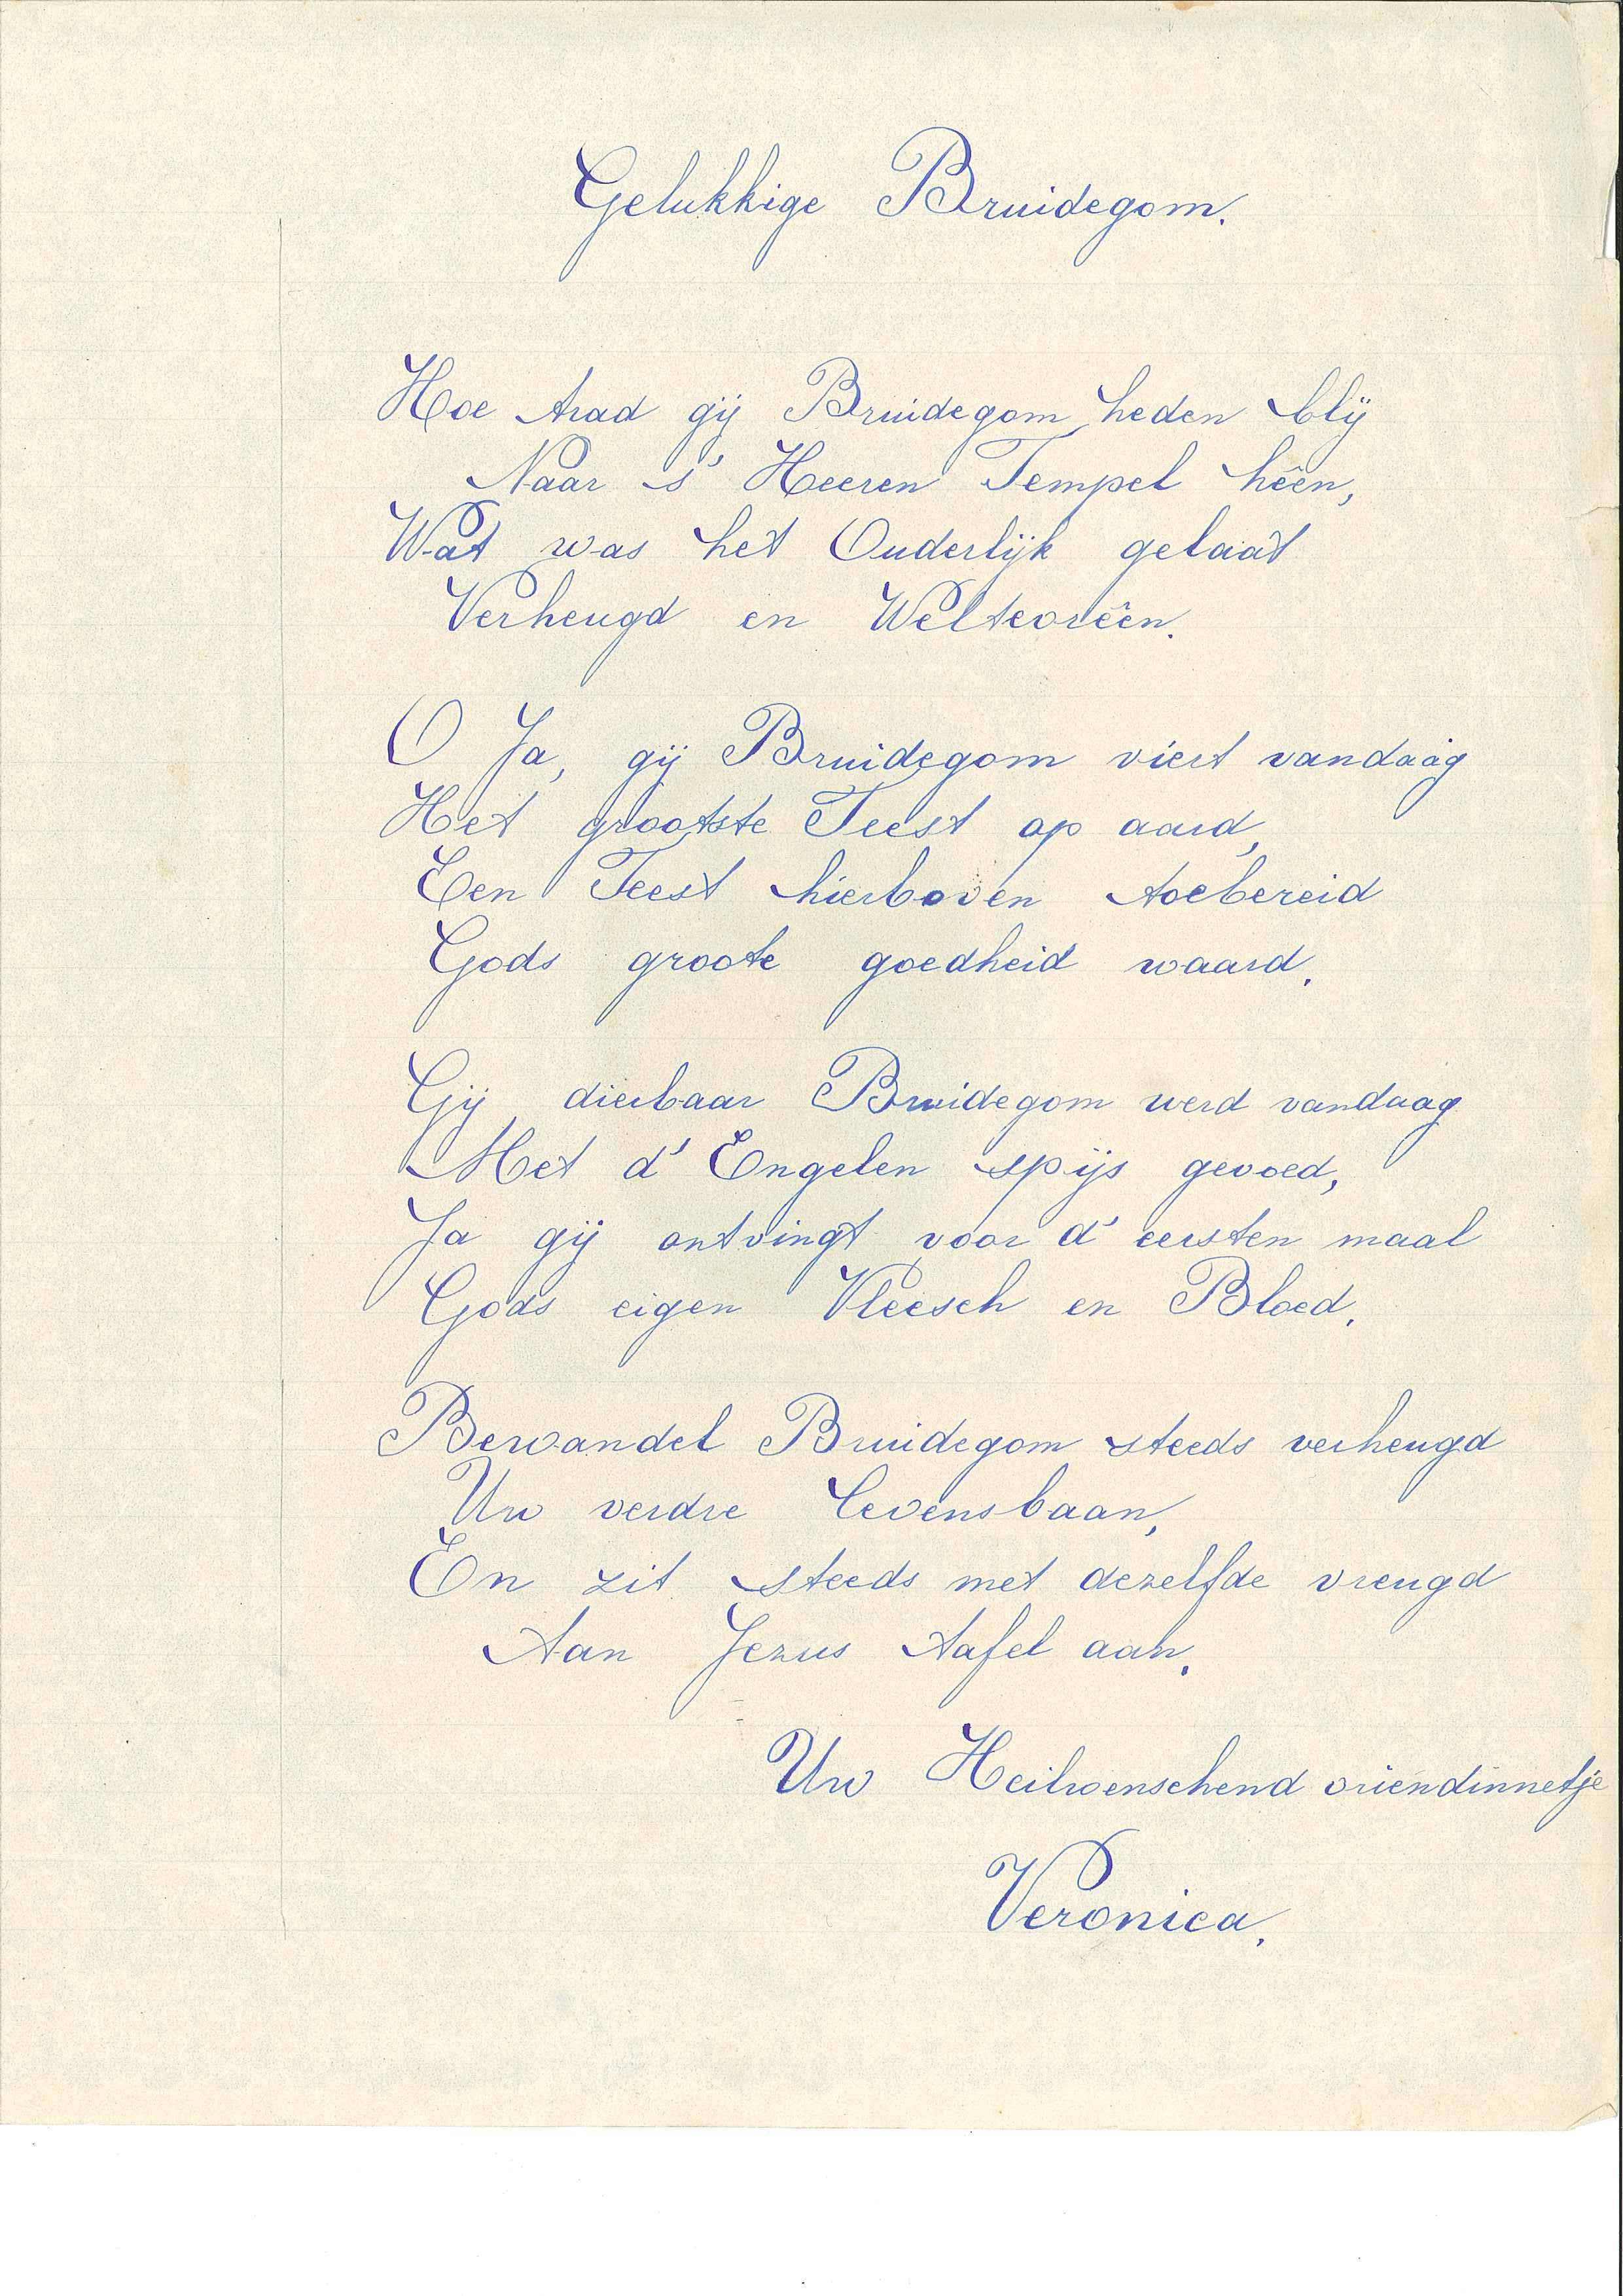 Gelukkige Bruidegom.
Hoe trad gij Bruidegom heden blij
Naar s' Heeren Tempel hêen,
Wat was het Ouderlijk gelaat
Verheugd en Weltevrêen.
O Ja, gij Bruidegom viert vandaag
Het grootste Feest op aard,
Een Feest hierboven toebereid
Gods groote goedheid waard.
Gij dierbaar Bruidegom werd vandaag
Met d' Engelen spijs gevoed,
Ja gij ontvingt voor d' eersten maal
Gods eigen Vleesch en Bloed.
Bewandel Bruidegom steeds verheugd
Uw verdre levensbaan,
En zit steeds met dezelfde vreugd
Aan Jezus tafel aan.
Uw Heilwenschend vriendinnetje
Veronica.